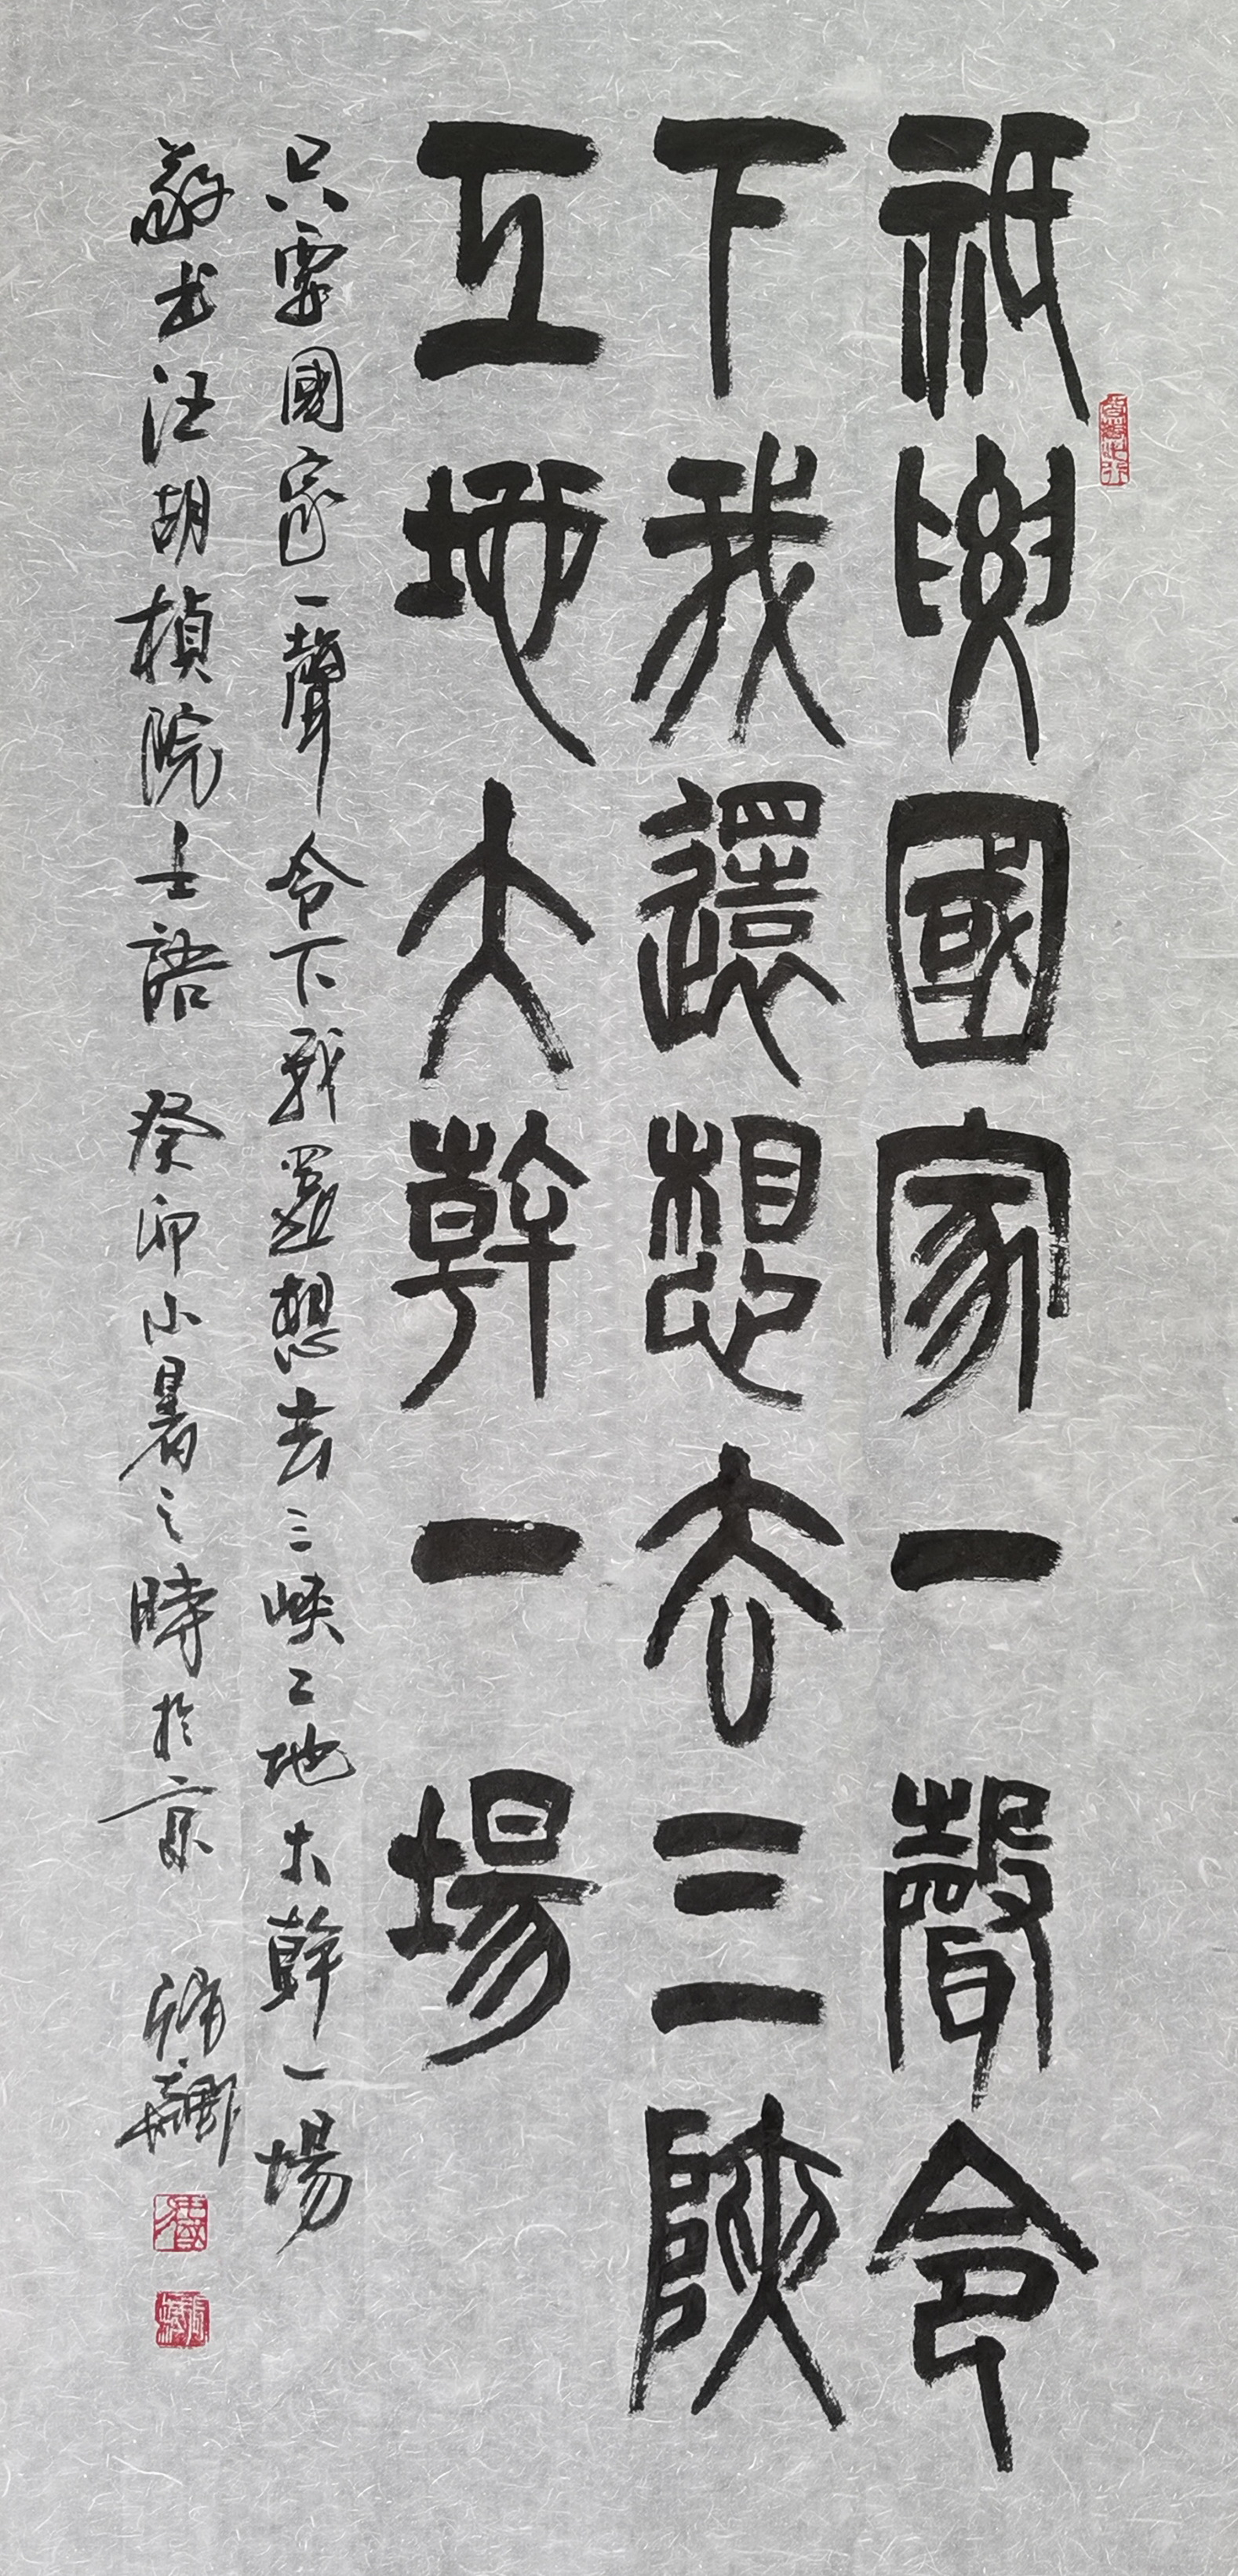 祇要國家一聲令
下我還想去三陝
工地大幹一場
只要國家一聲令下我還想去三峽工地大幹一場
敬书汪胡楨院士語 癸卯小暑之時於京